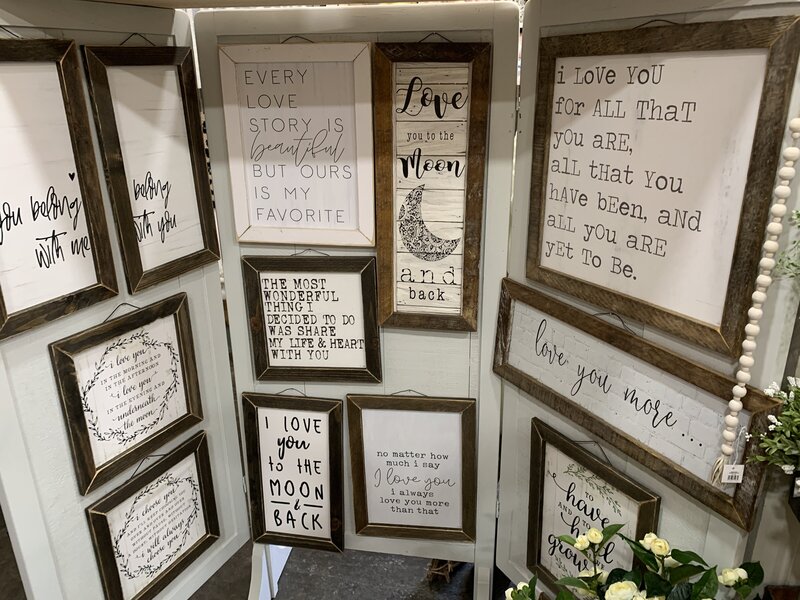 you belong
with me
belong
with you
i love you
IN THE MORNING AND
IN THE AFTERNOON
i love you
IN THE EVENING AND
underneath
the moon
i choose you
i will always
choose you
EVERY
LOVE
STORY IS
beautiful
BUT OURS
IS MY
FAVORITE
Love
you to the
Moon
and
back.
THE MOST
WONDERFUL
THING I
DECIDED TO DO
WAS SHARE
MY LIFE & HEART
WITH YOU
I LOVE
you
to THE
MOON
&
BACK
no matter how
much i say
I love you
i always
love you more
than that
i LOVE YOU
for ALL THaT
yOU aRE,
aLL tHaT YOU
hAVe bEEn, aNd
aLL yOU aRE
yEt To Be.
love you more ...
TO
have
AND TO
hold
grow